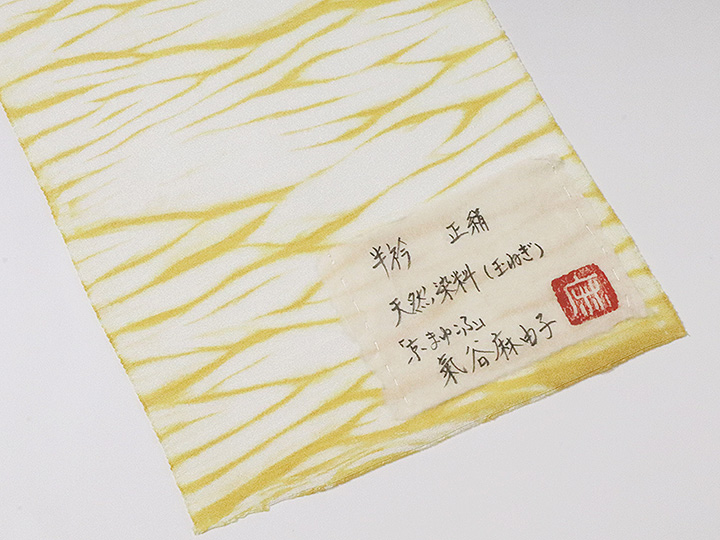 半衿　正絹
天然染料(玉ねぎ)
「京.まゆふ」
氣谷麻由子
麻